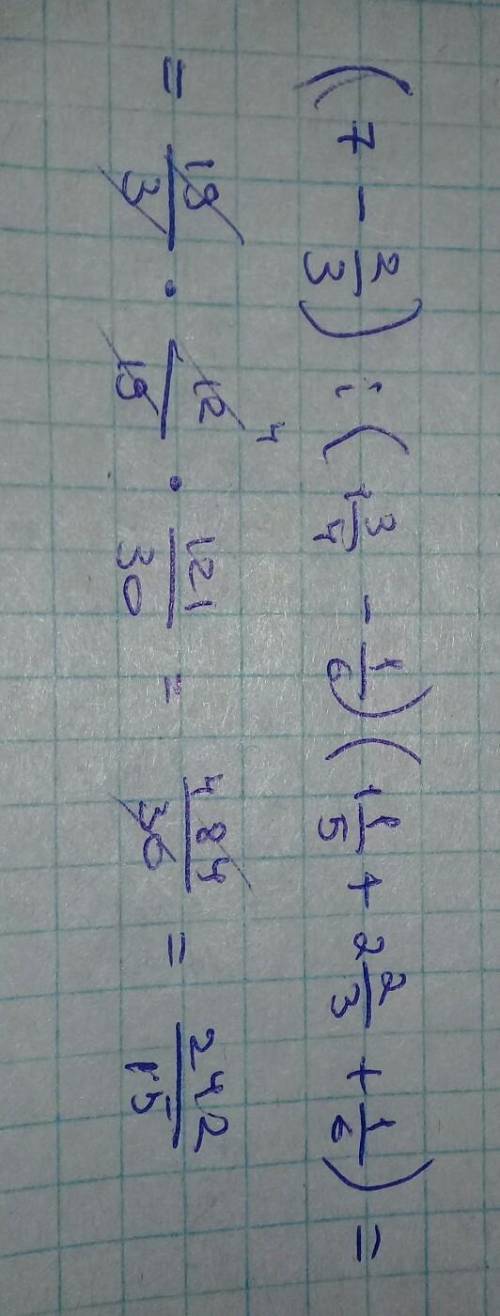 (7 - 2/3) : (1 3/4 - 1/6) (1 1/5 + 2 2/3 + 1/6) =
= 19/3 · 12/19 4 · 121/30 = 484/30 = 242/15